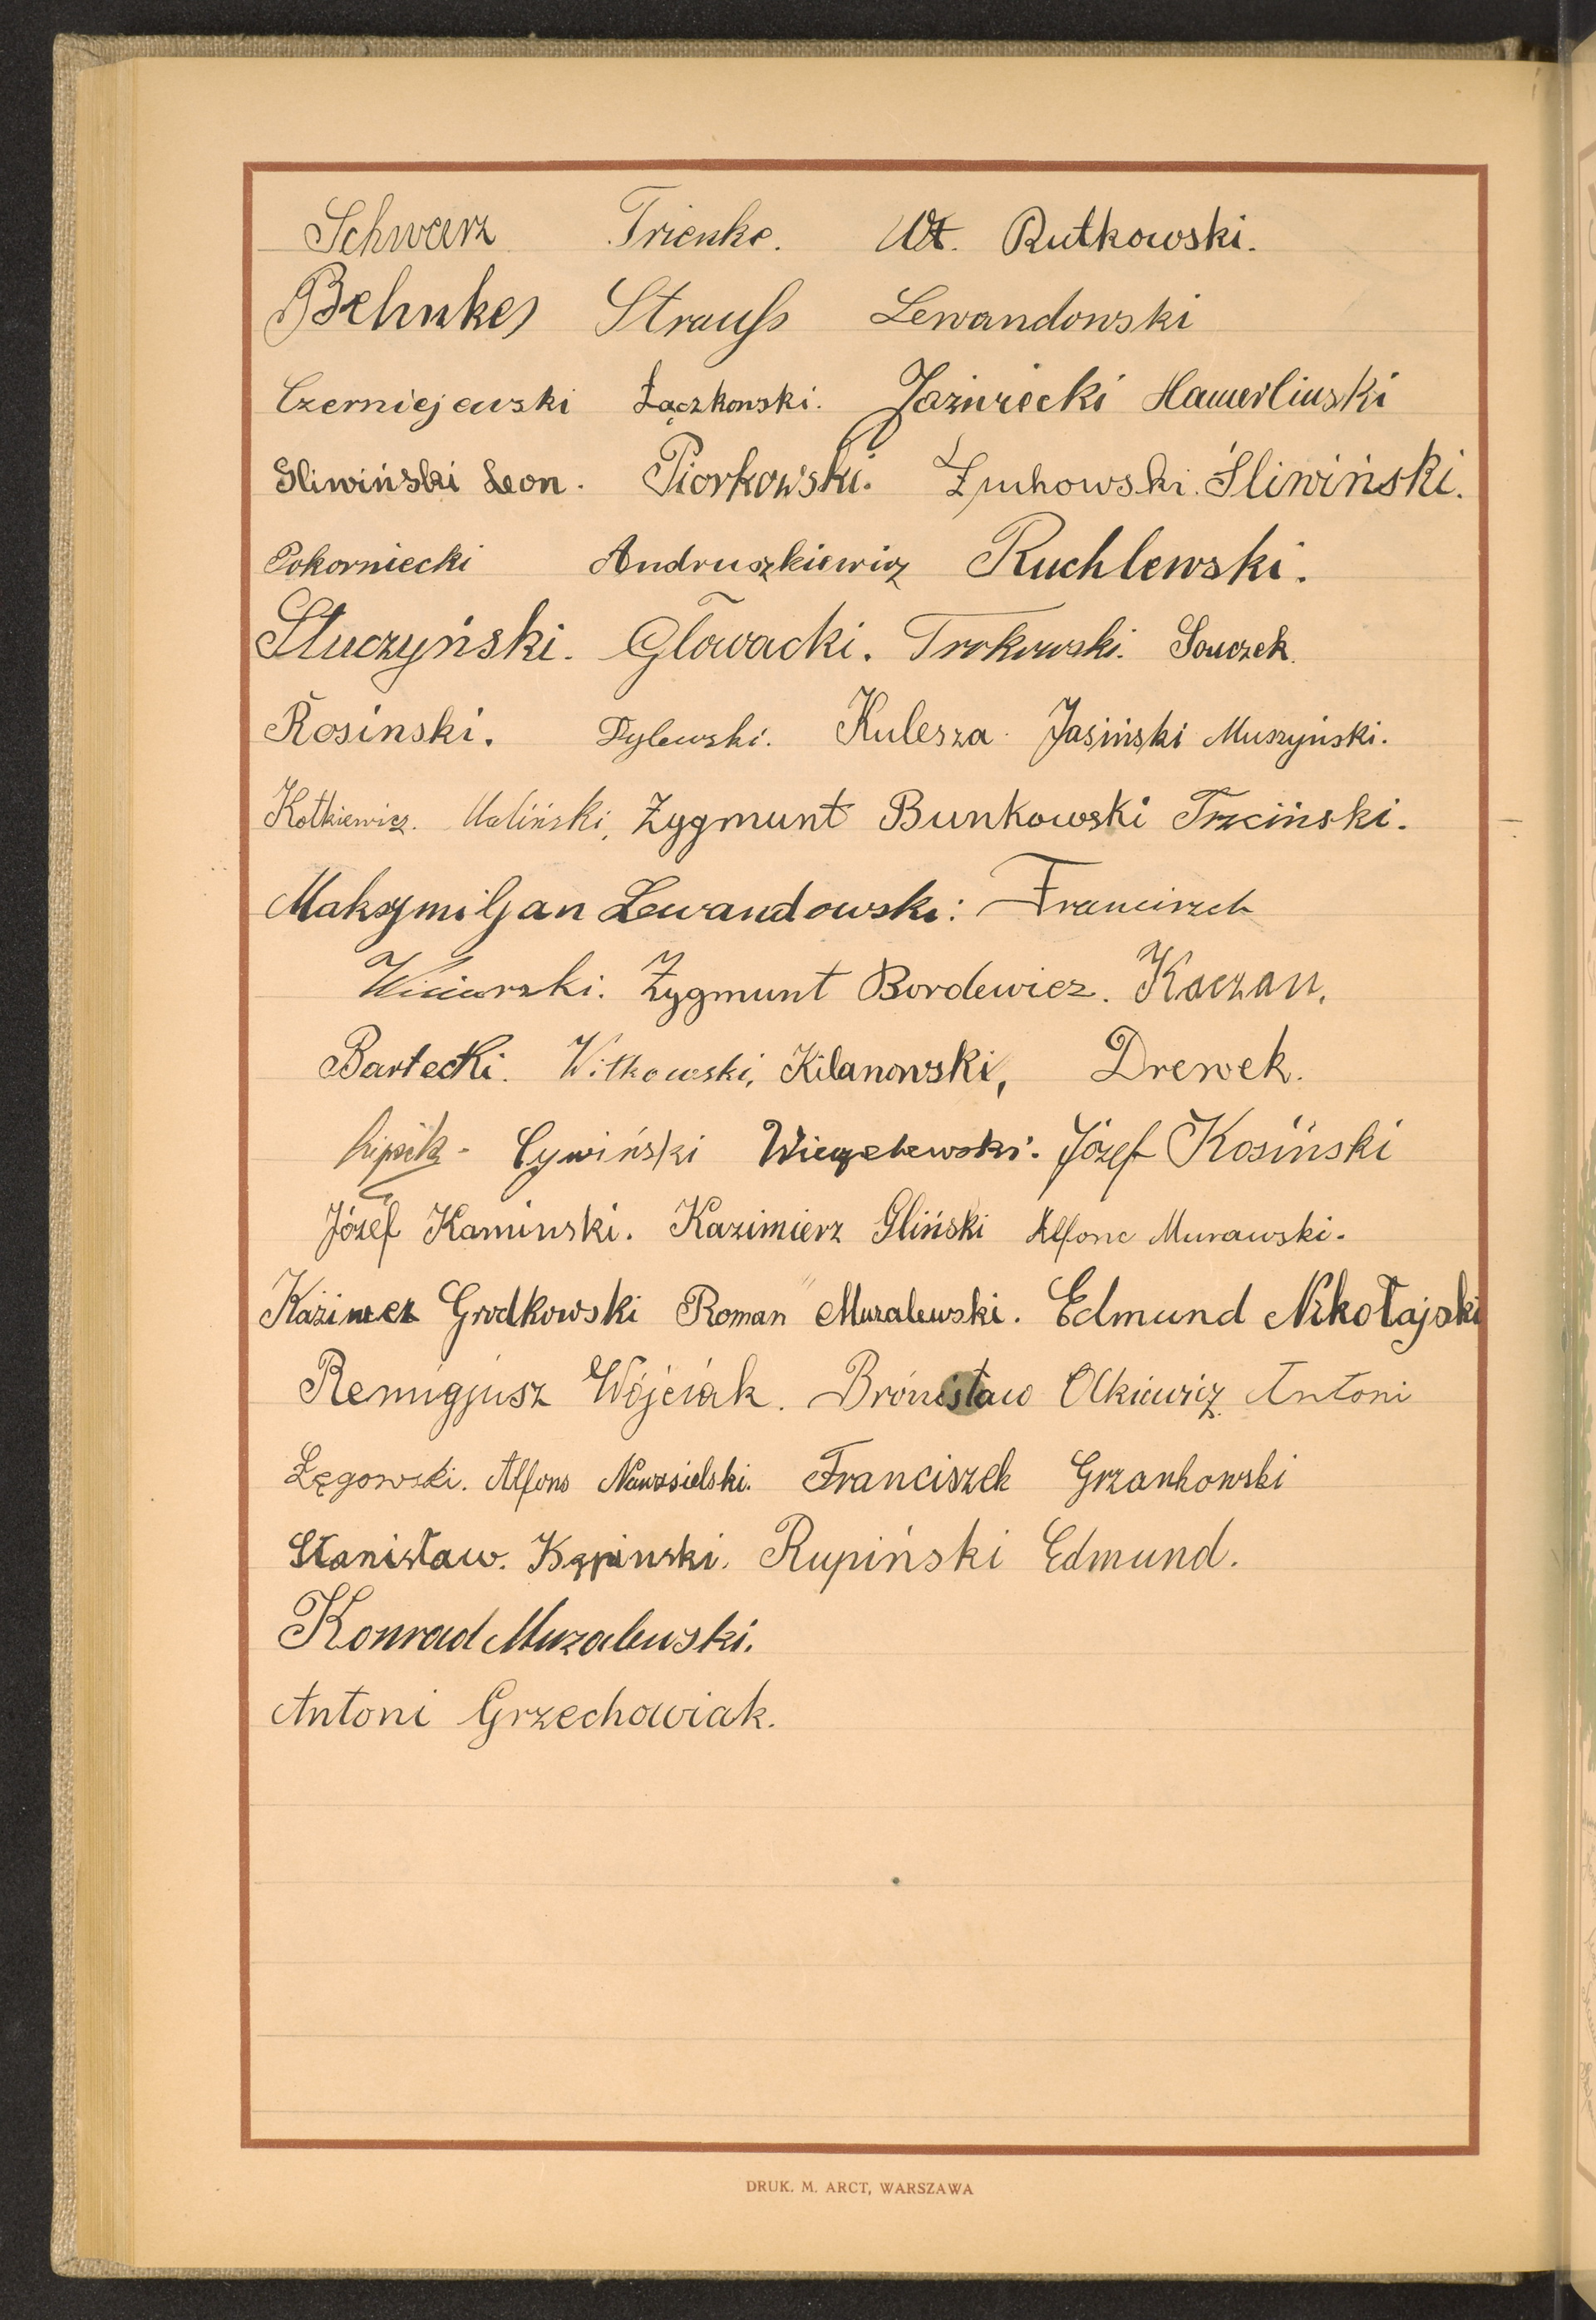 Schwarz Trienke. Wł. Rutkowski.
Behnke Strauss Lewandowski
Czerniejewski Łączkowski. Jaźwiecki Hamerliński
Gliwiński Leon. Piorkowski. Żuchowski. Śliwiński.
Pokorniecki Andruszkiewicz Ruchlewski.
Słuczyński. Głowacki. Trokowski. Souczek.
Rosinski. Dylewski. Kulesza Jasiński Muszyński.
Kotkiewicz. Maliński, Zygmunt Bunkowski Trzciński.
Maksymiljan Lewandowski: Franciszek
Zygmunt Bordewicz. Kaczan.
Bartecki. Witkowski, Kilanowski, Drewek.
Cywiński Józef Kosiński
Józef Kaminski. Kazimierz Gliński Alfons Murawski.
Kazimierz Grodkowski Roman Muzalewski. Edmund Nikołajski
Remigjusz Wójciak. Bronisław Olkiewicz Antoni
Łęgowski. Alfons Nawosielski. Franciszek Grzankowski
Stanisław. Kępinski. Rupiński Edmund.
Konrad Muzalewski.
Antoni Grzechowiak.
DRUK. M. ARCT, WARSZAWA